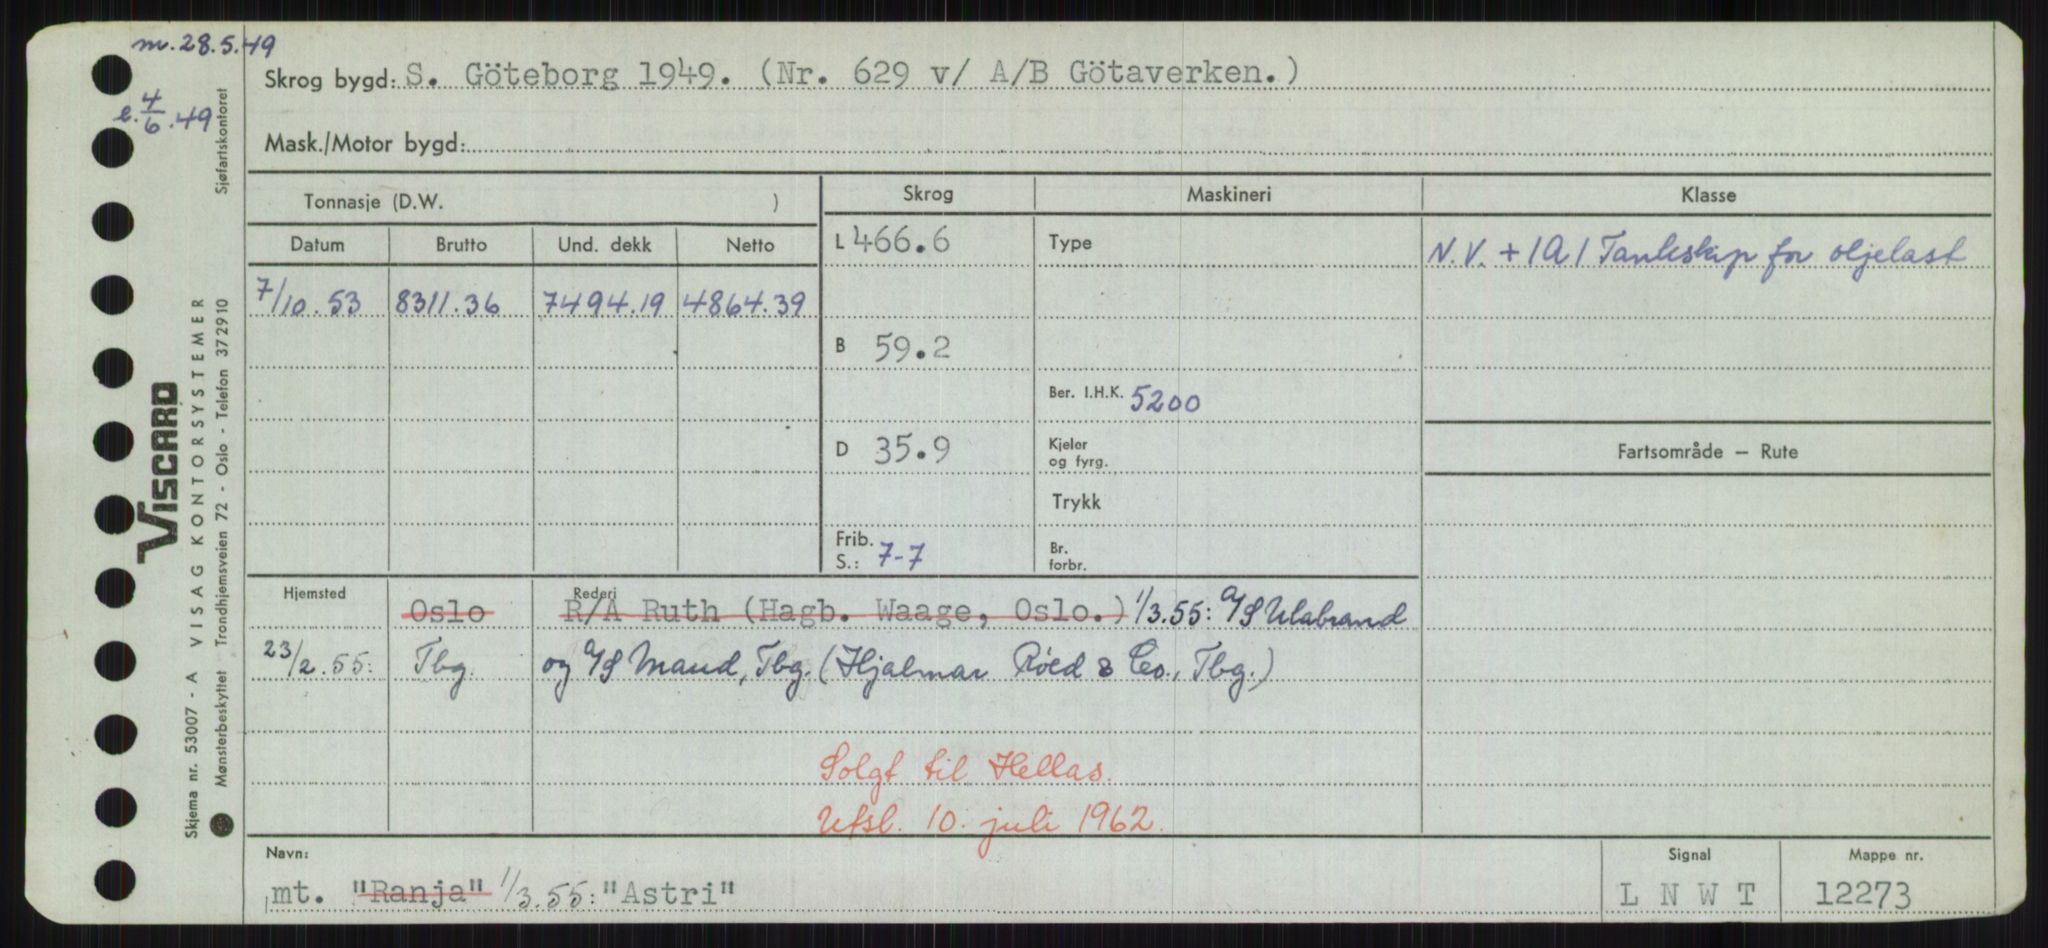 m. 28.5.49
e. 4/6.49
Skrog bygd: S. Göteborg 1949. (Nr. 629 v/ A/B Götaverken.)
Mask./Motor bygd:
Tonnasje (D.W. )
Skrog
Maskineri
Klasse
Datum
Brutto
Und. dekk
Netto
L 466.6
Type
N.V. + 1A1 Tankskip for oljelast
7/10.53 8311.36 7494.19 4864.39
B 59.2
Ber. I.H.K. 5200
D 35.9
Kjeler
og fyrg.
Fartsområde — Rute
Trykk
Frib.
S.: 7-7
Br.
forbr.
Hjemsted
Rederi
Oslo R/A Ruth (Hagb. Waage, Oslo.) 1/3.55: A/S Ulabrand
23/2.55: Tbg. og A/S Maud, Tbg. (Hjalmar Röed & Co., Tbg.)
Solgt til Hellas.
Utsl. 10. juli 1962.
Navn:
Signal
Mappe nr.
mt. "Ranja" 1/3.55: "Astri"
L N W T
12273
VISCARD
Skjema nr. 53007 - A VISAG KONTORSYSTEMER
Mønsterbeskyttet Trondhjemsveien 72 - Oslo - Telefon 372910
Sjøfartskontoret